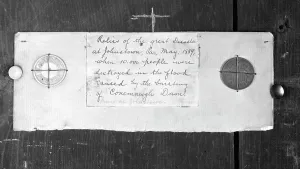 Relics of the great disaster
at Johnstown, Pa., May, 1889,
when 10,000 people were
destroyed in the flood
caused by the bursting
of Conemaugh Dam.